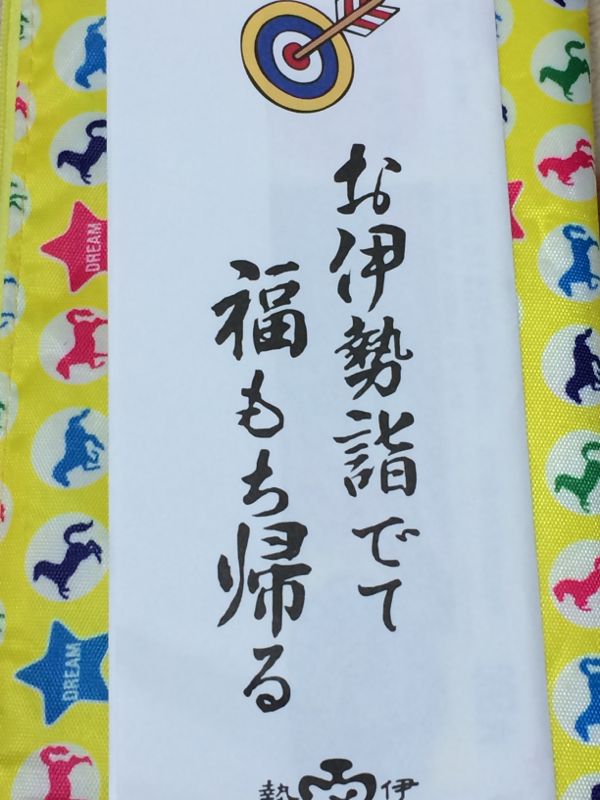 お伊勢詣でて
福もち帰る
伊
勢
DREAM
DREAM